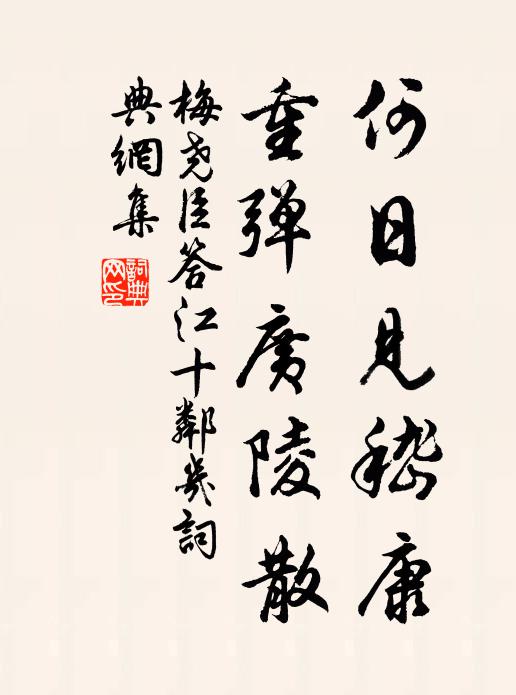 何日見嵇康
重弹廣陵散
梅堯臣答江十鄰幾詞
典網集
詞典
网印